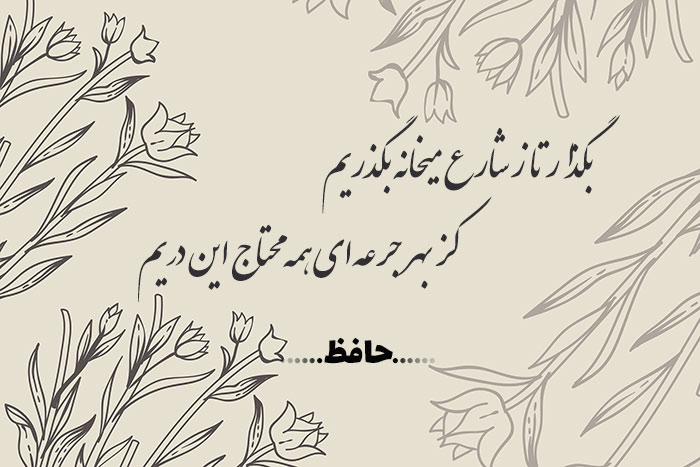 بگذار تا ز شارع میخانه بگذریم
کز بهر جرعه‌ای همه محتاج این دریم
......حافظ......